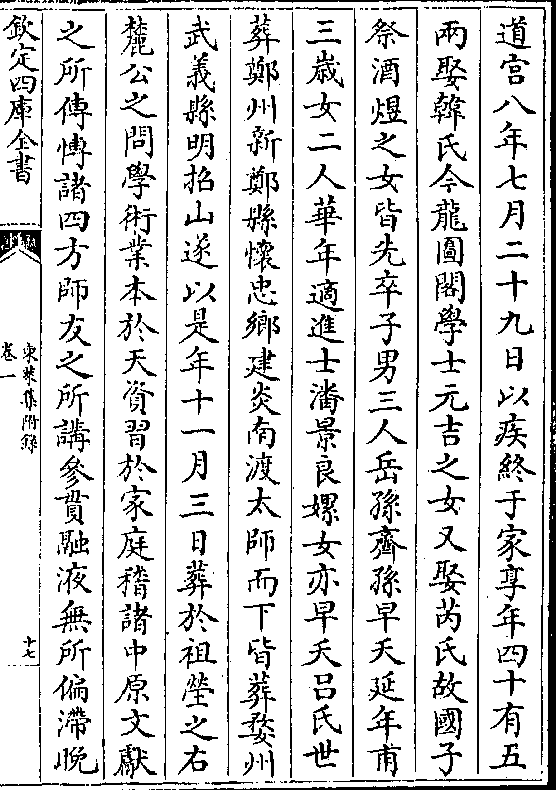 道宫八年七月二十九日以疾終于家享年四十有五
兩娶韓氏今龍圖閣學士元吉之女又娶芮氏故國子
祭酒煜之女皆先卒子男三人岳孫齊孫早夭延年甫
三歲女二人華年適進士潘景良嫘女亦早夭吕氏世
葬鄭州新鄭縣懷忠鄉建炎南渡太師而下皆葬婺州
武義縣明招山遂以是年十一月三日葬於祖塋之右
麓公之問學術業本於天資習於家庭稽諸中原文獻
之所傳愽諸四方師友之所講參貫融液無所偏滯晩
欽定四庫全書
東萊集附録
卷一
十七